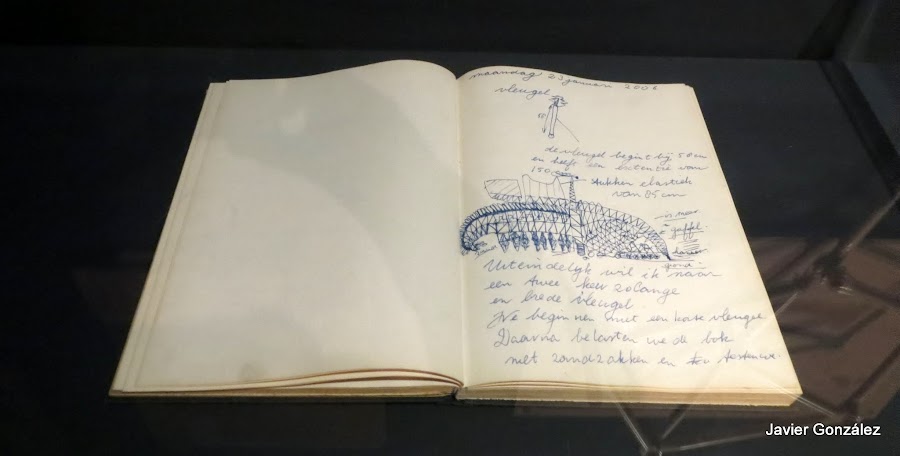 maandag 23 januari 2006
vleugel
de vleugel begint bij 50 cm
en heeft een extentie van
150
stukken elastiek
van 85 cm
gaffel
Uiteindelijk wil ik naar
een twee keer zo lange
en brede vleugel.
We beginnen met een korte vleugel
Daarna belasten we de bok
met zandzakken en
Javier González